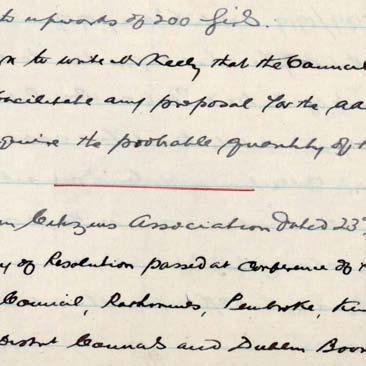 upwards of 200 girls.
to write Mr Keely that the Council
facilitate any proposal for the
the probable quantity of
Citizens Association dated 23rd
of Resolution passed at Conference of
Council, Rathmines, Pembroke,
District Councils and Dublin